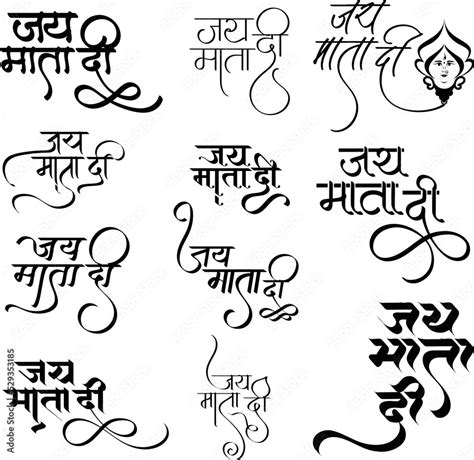 जय
माता दी
जय
माता दी
जय
माता दी
जय
माता दी
जय
माता दी
जय
माता दी
जय
माता दी
जय
माता दी
जय
माता
दी
जय
माता दी
जय
माता दी
Adobe Stock | #529353185